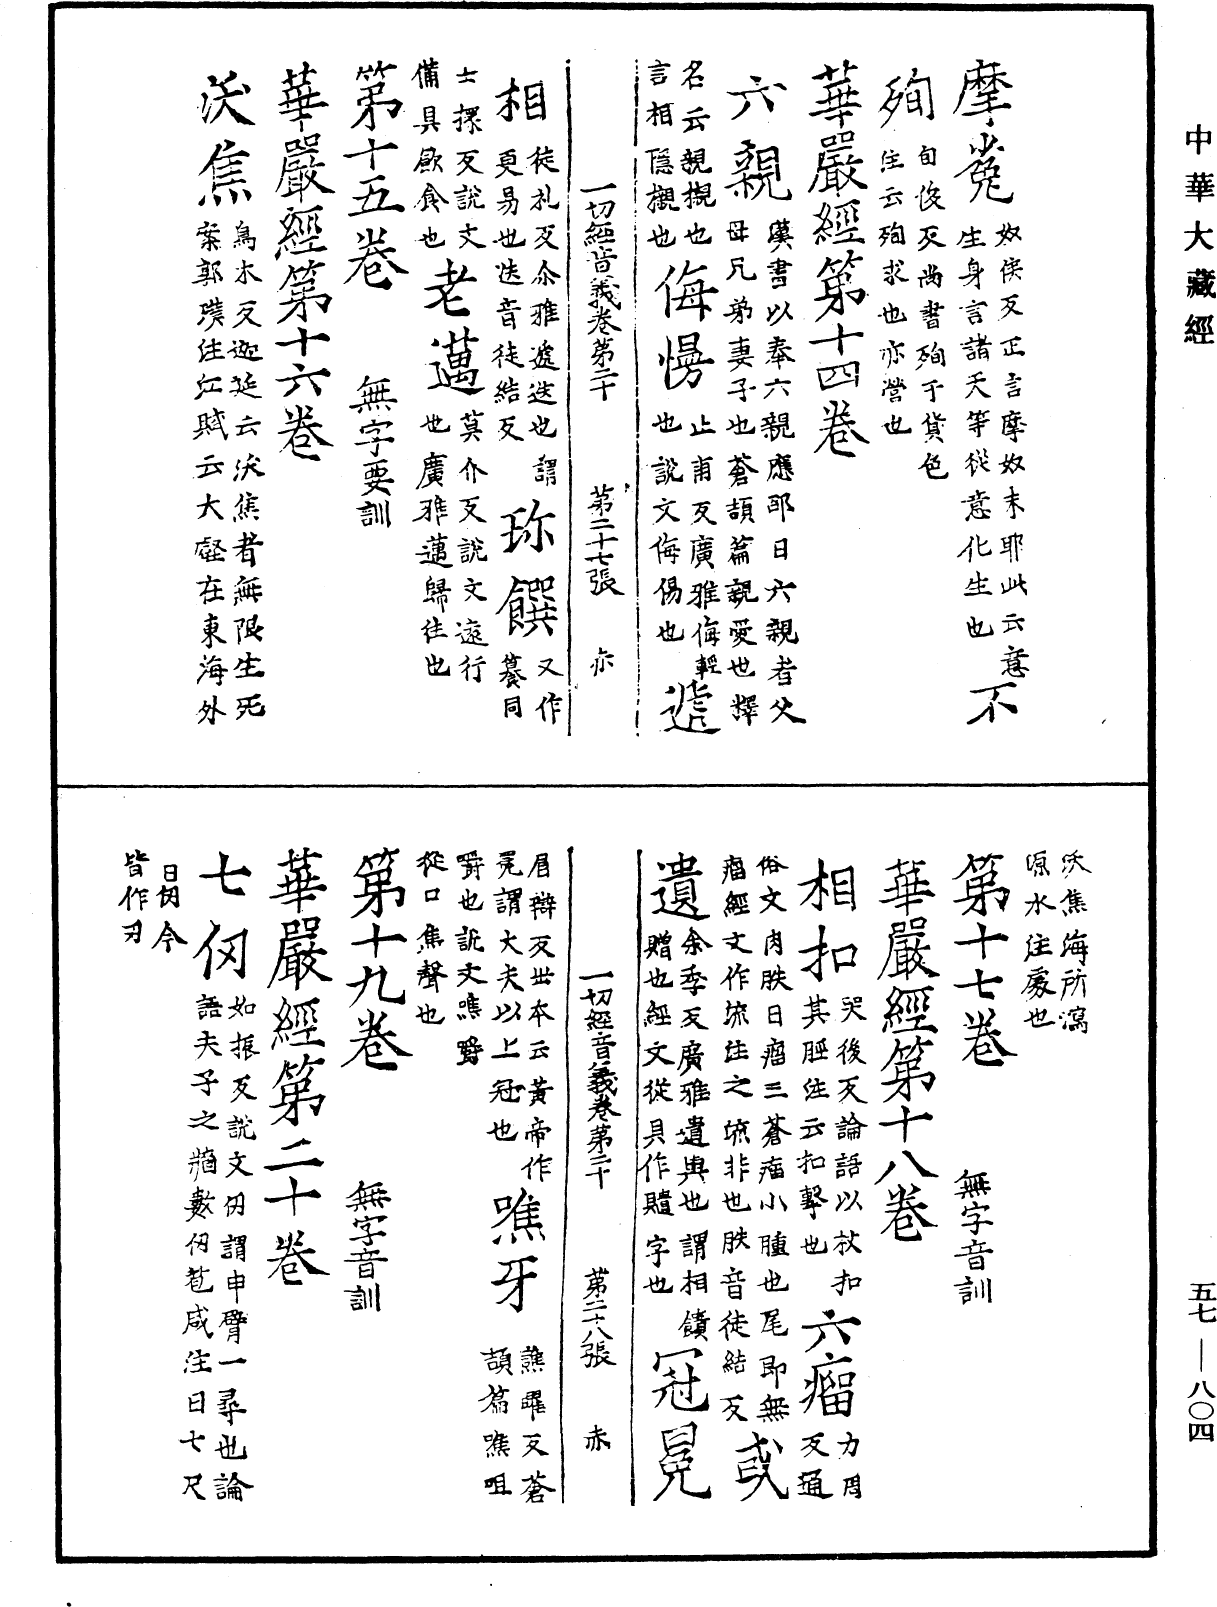 中華大藏經
摩㝹 奴侯反正言摩奴末耶此云意
生身言諸天等從意化生也 不
殉 自俊反尚書殉于貨色
注云殉求也亦營也
華嚴經第十四卷
六親 漢書以奉六親應邵曰六親者父
母兄弟妻子也蒼頡篇親愛也釋
名云親櫬也
言相隱櫬也 侮慢 止甫反廣雅侮輕
也說文侮傷也 遞
一切經音義卷第二十 第二十七張 亦
相 徒礼反尒雅遞迭也謂
更易也迭音徒結反 珎饌 又作
䉵同
士㩭反說文
備具飲食也 老邁 莫介反說文遠行
也廣雅邁歸往也
第十五卷 無字要訓
華嚴經第十六卷
沃焦 烏木反迦延云沃焦者無限生死
案郭璞注江賦云大壑在東海外
沃焦海所瀉
源水注處也
第十七卷 無字音訓
華嚴經第十八卷
相扣 哭後反論語以杖扣
其脛注云扣擊也 六瘤 力周
反通
俗文肉胅曰瘤三蒼瘤小腫也尾即無
瘤經文作流注之流非也胅音徒結反 或
遺 余季反廣雅遺與也謂相饋
贈也經文從具作䞇字也 冠冕
一切經音義卷第二十 第二十八張 赤
眉辯反丗本云黃帝作
冕謂大夫以上冠也 噍牙 譙曜反蒼
頡篇噍咀
嚼也說文噍嚼
從口焦聲也
第十九卷 無字音訓
華嚴經第二十卷
七仞 如振反說文仞謂申臂一尋也論
語夫子之牆數仞苞咸注曰七尺
曰仞今
皆作刃
五七—八〇四